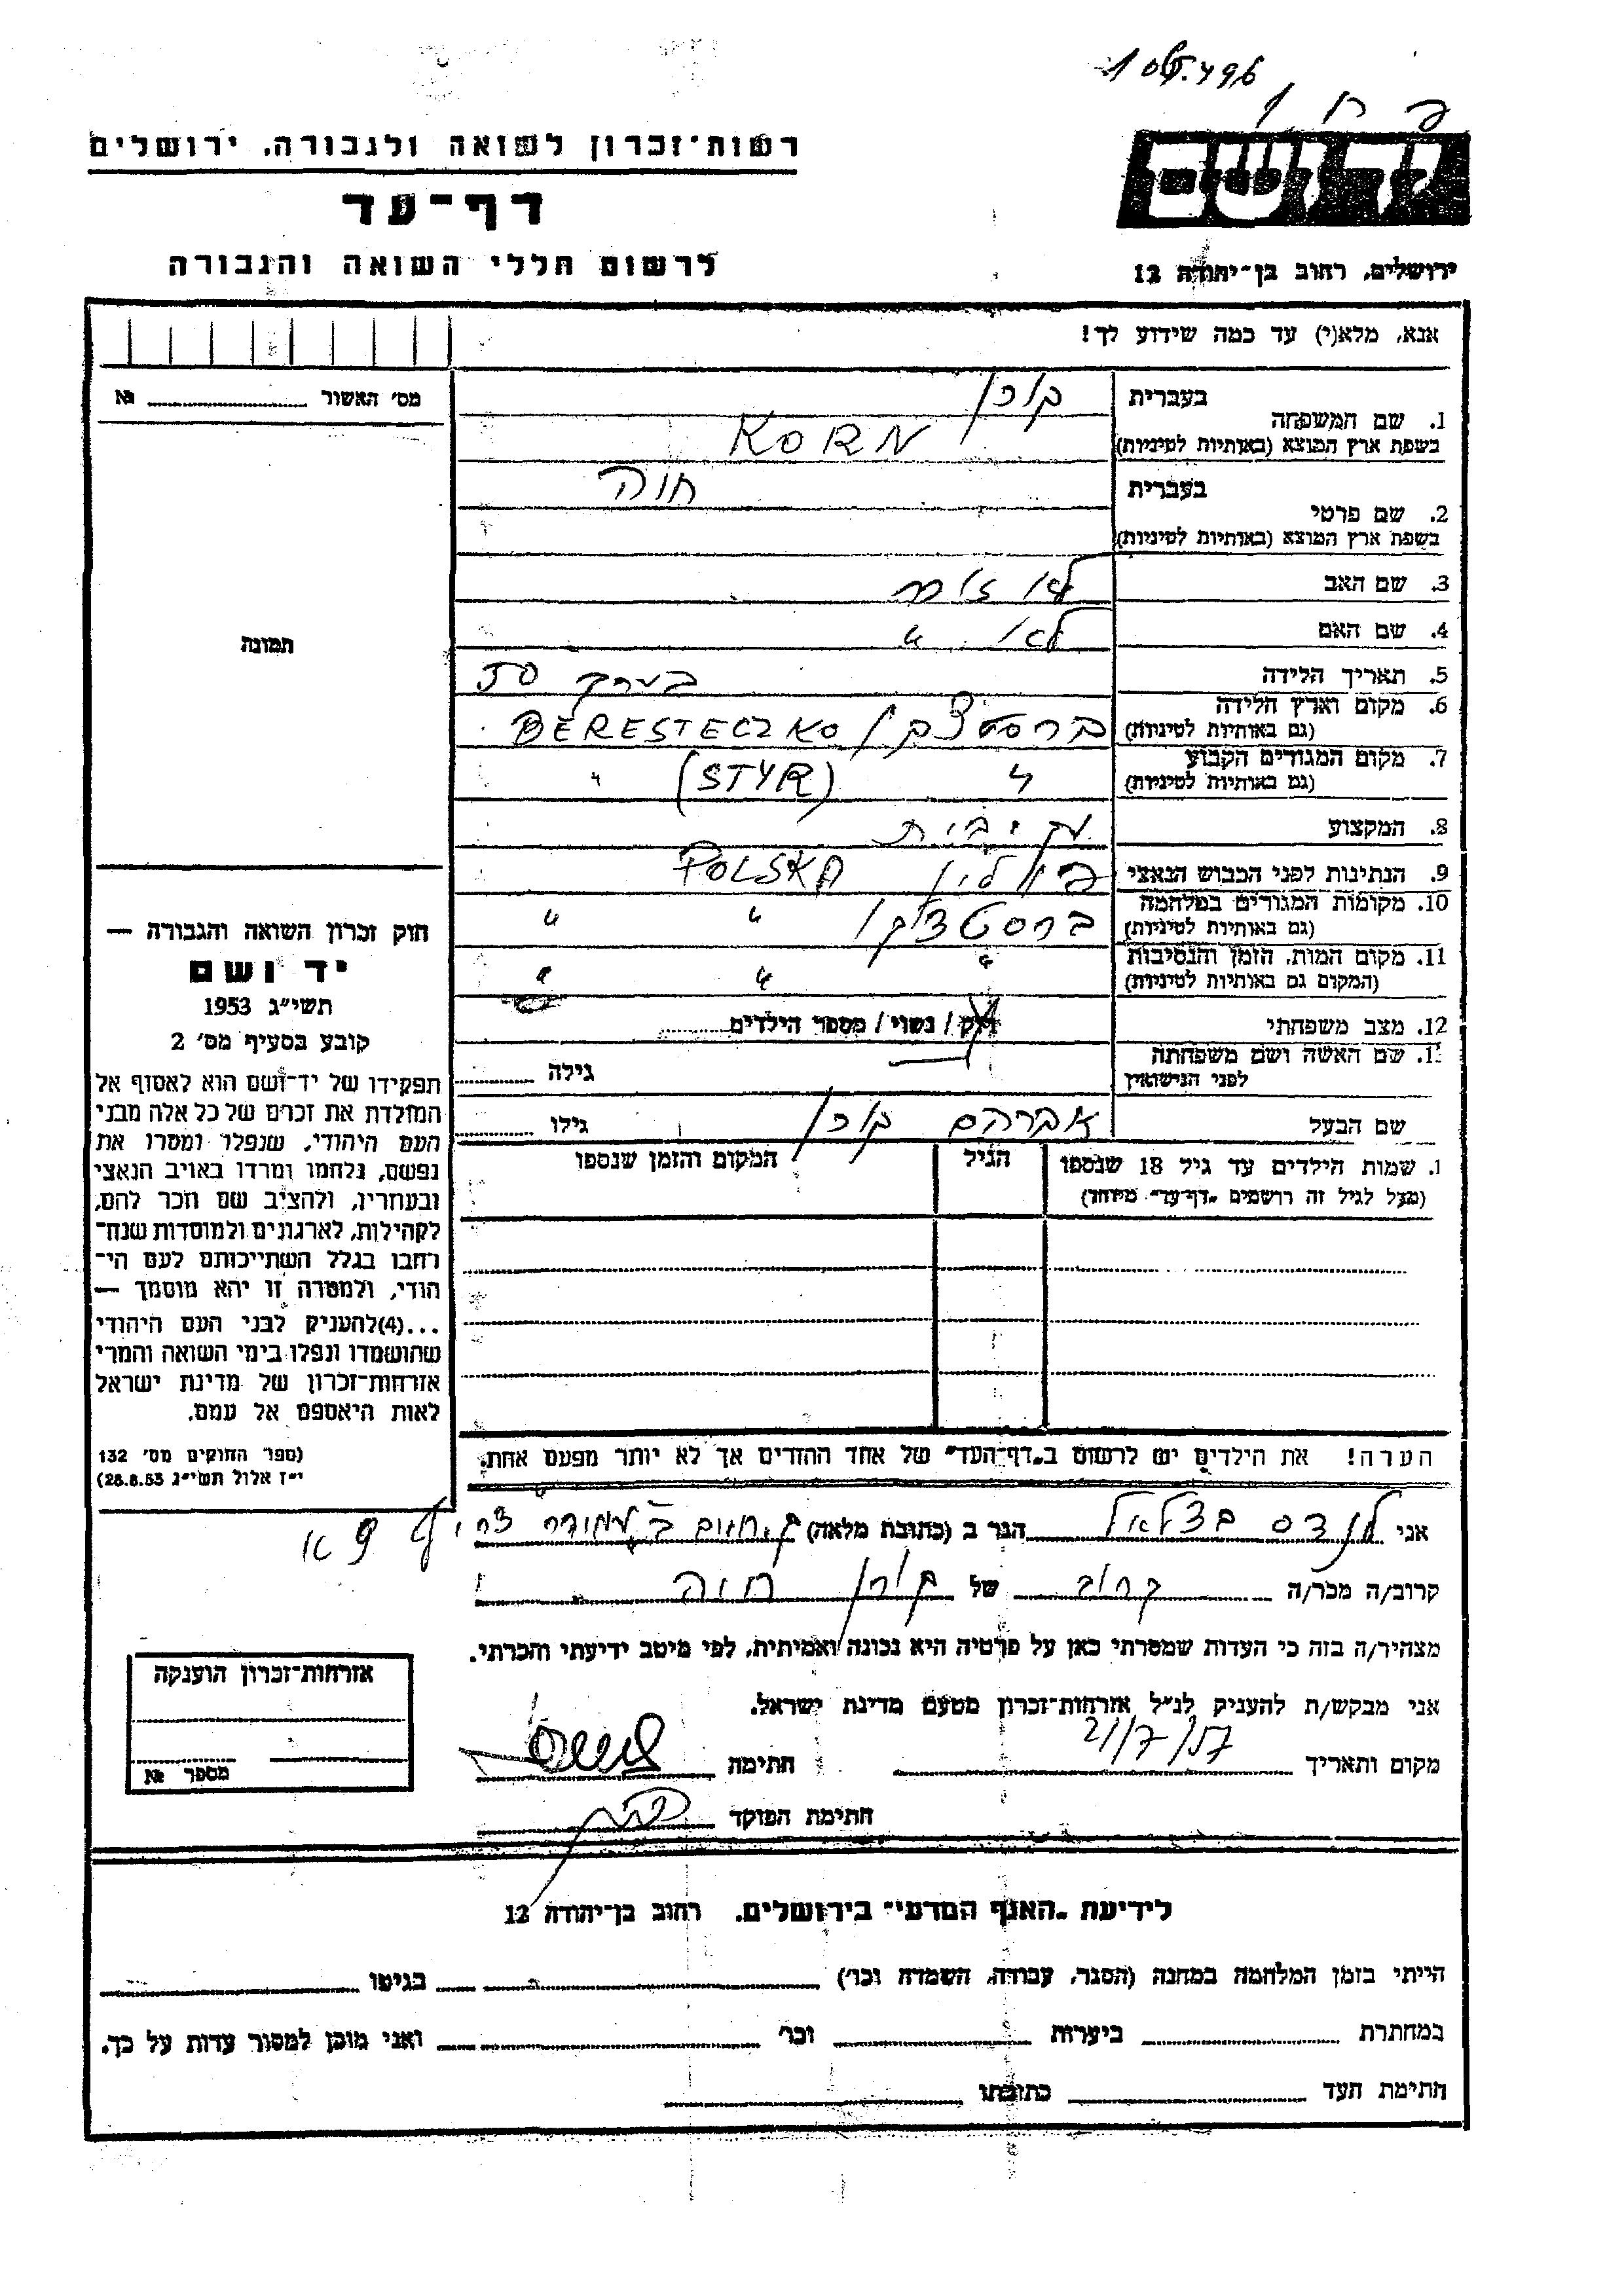 רשות־זכרון לשואה ולגבורה, ירושלים
דף־עד
לרשום חללי השואה והגבורה
יד ושם
ירושלים, רחוב בן־יהודה 12
אנא, מלא(י) עד כמה שידוע לך!
מס׳ האשור № 
תמונה
1. שם המשפחה
בעברית קורן
בשפת ארץ המוצא (באותיות לטיניות) KORN
2. שם פרטי
בעברית חוה
בשפת ארץ המוצא (באותיות לטיניות)
3. שם האב לא זוכר
4. שם האם לא "
5. תאריך הלידה בערך 50
6. מקום וארץ הלידה ברסטצקו BERESTECZKO
(גם באותיות לטיניות)
7. מקום המגורים הקבוע " (STYR) "
(גם באותיות לטיניות)
8. המקצוע
9. הנתינות לפני הכבוש הנאצי פולין POLSKA
10. מקומות המגורים במלחמה ברסטצקו " "
(גם באותיות לטיניות)
11. מקום המות, הזמן והנסיבות " " "
(המקום גם באותיות לטיניות)
12. מצב משפחתי רוק / נשוי / מספר הילדים
שם האשה ושם משפחתה
לפני הנישואין גילה
שם הבעל אברהם קורן גילו
שמות הילדים עד גיל 18 שנספו הגיל המקום והזמן שנספו
(מעל לגיל זה רושמים „דף־עד" מיוחד)
חוק זכרון השואה והגבורה —
יד ושם
תשי״ג 1953
קובע בסעיף מס׳ 2
תפקידו של יד־ושם הוא לאסוף אל
המולדת את זכרם של כל אלה מבני
העם היהודי, שנפלו ומסרו את
נפשם, נלחמו ומרדו באויב הנאצי
ובעוזריו, ולהציב שם וזכר להם,
לקהילות, לארגונים ולמוסדות שנח־
רחבו בגלל השתייכותם לעם הי־
הודי, ולמטרה זו יהא מוסמך —
...(4)להעניק לבני העם היהודי
שהושמדו ונפלו בימי השואה והמרי
אזרחות־זכרון של מדינת ישראל
לאות היאספם אל עמם.
(ספר החוקים מס׳ 132
י״ז אלול תשי״ג 28.8.53)
הערה! את הילדים יש לרשום ב„דף־העד" של אחד ההורים אך לא יותר מפעם אחת.
אני לנדס בצלאל הגר ב (כתובת מלאה)
קרוב/ה מכר/ה קרוב של קורן חוה
מצהיר/ה בזה כי העדות שמסרתי כאן על פרטיה היא נכונה ואמיתית, לפי מיטב ידיעתי והכרתי.
אני מבקש/ת להעניק לנ״ל אזרחות־זכרון מטעם מדינת ישראל.
מקום ותאריך 21/7/57 חתימה
חתימת הפוקד
אזרחות־זכרון הוענקה
מספר №
לידיעת „האגף המדעי" בירושלים, רחוב בן־יהודה 12
הייתי בזמן המלחמה במחנה (הסגר, עבודה, השמדה וכו׳) בגיטו
במחתרת ביערות וכו׳ ואני מוכן למסור עדות על כך.
חתימת העד כתובתו